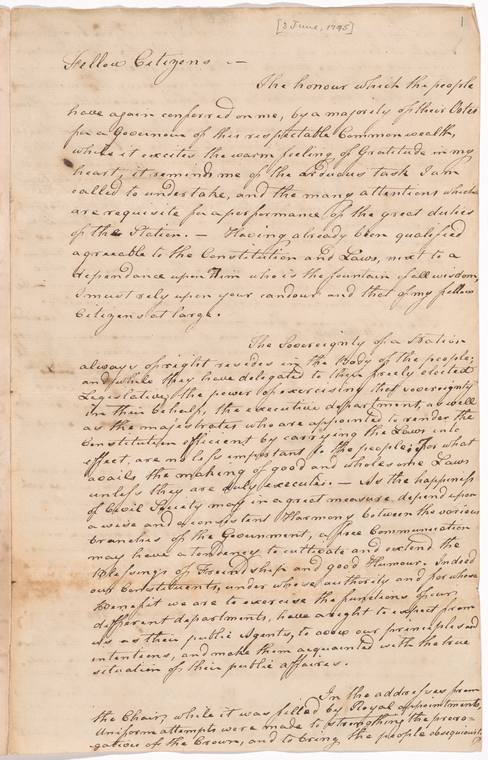 [3 June, 1795]
1
Fellow Citizens —
The honour which the people
have again conferred on me, by a majority of their Votes
for a Governour of this respectable Commonwealth,
while it excites the warm feeling of Gratitude in my
heart, it reminds me of the arduous task I am
called to undertake, and the many attentions which
are requisite for a performance of the great duties
of the Station. — Having already been qualified
agreeable to the Constitution and Laws, next to a
dependance upon Him who is the fountain of all wisdom,
I must rely upon your candour and that of my fellow
Citizens at large.
The Sovereignty of a Nation
always of right resides in the Body of the people;
and while they have delegated to their freely elected
Legislative, the power of exercising that sovereignty
in their behalf, the executive department, as well
as the magistrates who are appointed to render the
Constitution efficient by carrying the Laws into
effect, are no less important to the people; For what
avails the making of good and wholesome Laws
unless they are duly executed. — As the happiness
of Civil Society must in a great measure depend upon
a wise and a consistent Harmony between the various
branches of the Government, a free Communication
may have a tendency to cultivate and extend the
Blessings of Friendship and good Humour. Indeed
our Constituents, under whose authority and for whose
Benefit we are to exercise the functions of our
different departments, have a right to expect from
us as their public Agents, to avow our principles and
intentions, and make them acquainted with the true
situation of their public affaires.
In the addresses from
the Chair, while it was filled by Royal appointments,
Uniform attempts were made to strengthing the prero-
gatives of the Crown, and to bring the people obsequiously